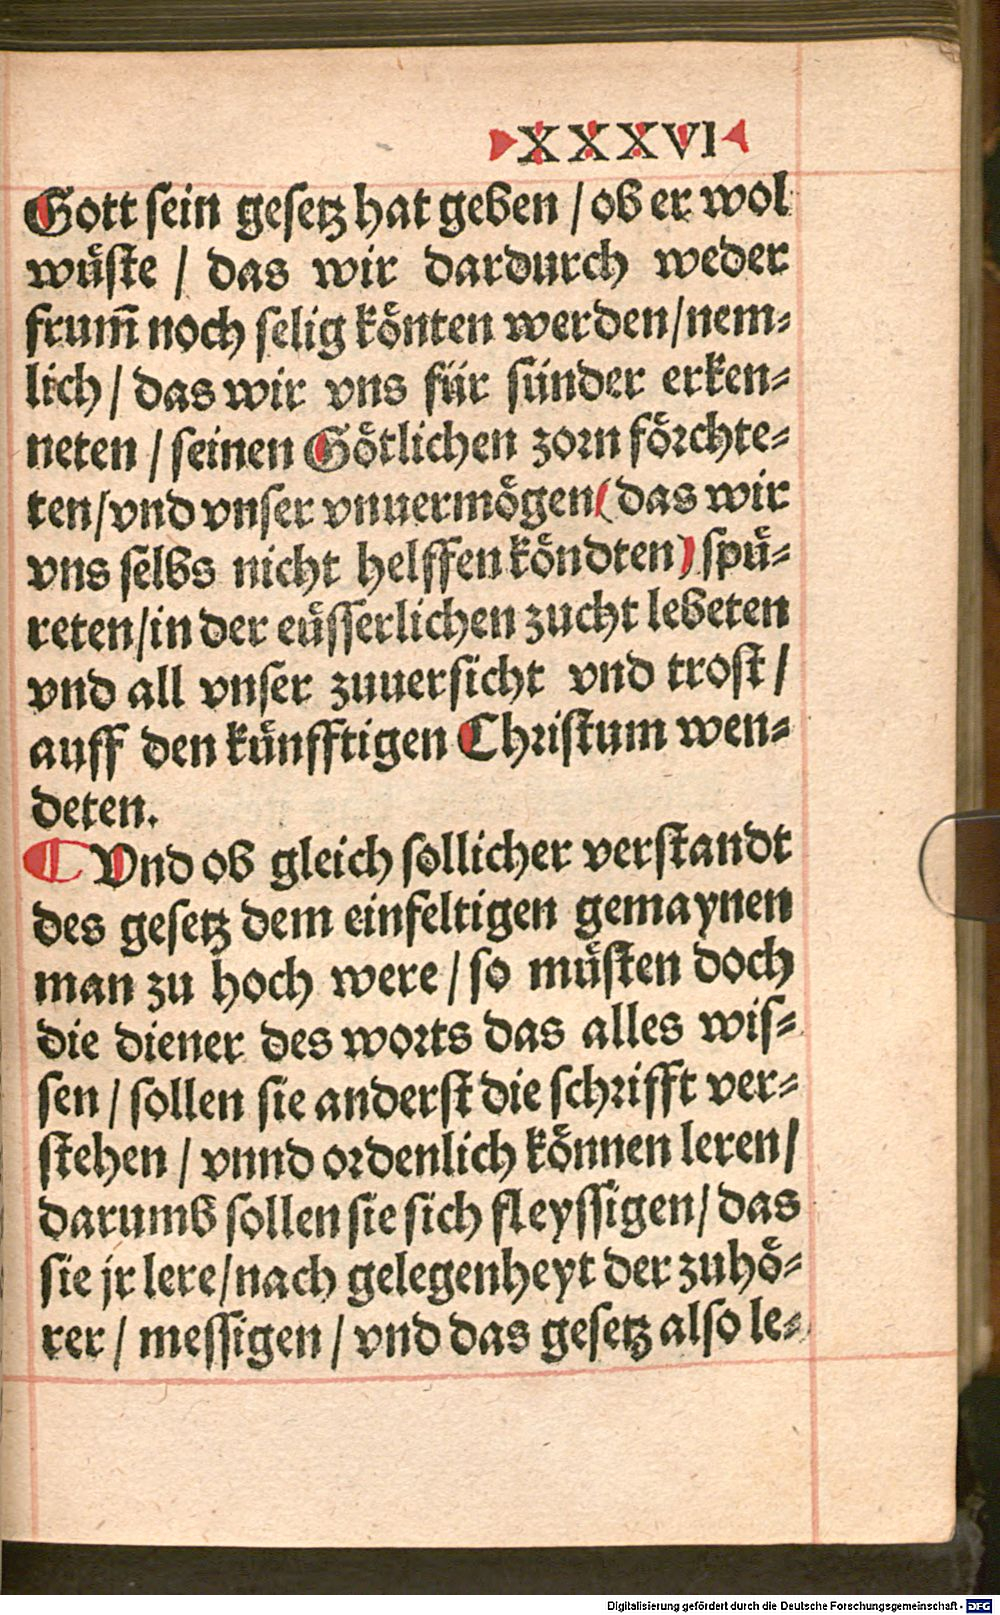 XXXVI
Gott sein gesetz hat geben / ob er wol
wüste / das wir dardurch weder
frum̃ noch selig könten werden/nem⸗
lich / das wir vns für sünder erken⸗
neten / seinen Götlichen zorn förchte⸗
ten/vnd vnser vnuermögen( das wir
vns selbs nicht helffen köndten) spü⸗
reten/in der eüsserlichen zucht lebeten
vnd all vnser zuuersicht vnd trost /
auff den künfftigen Christum wen⸗
deten.
¶ Vnd ob gleich sollicher verstandt
des gesetz dem einfeltigen gemaynen
man zu hoch were / so müsten doch
die diener des worts das alles wis⸗
sen / sollen sie anderst die schrifft ver⸗
stehen / vnnd ordenlich können leren /
darumb sollen sie sich fleyssigen/ das
sie jr lere/nach gelegenheyt der zuhö⸗
rer / messigen / vnd das gesetz also le⸗
Digitalisierung gefördert durch die Deutsche Forschungsgemeinschaft - DFG